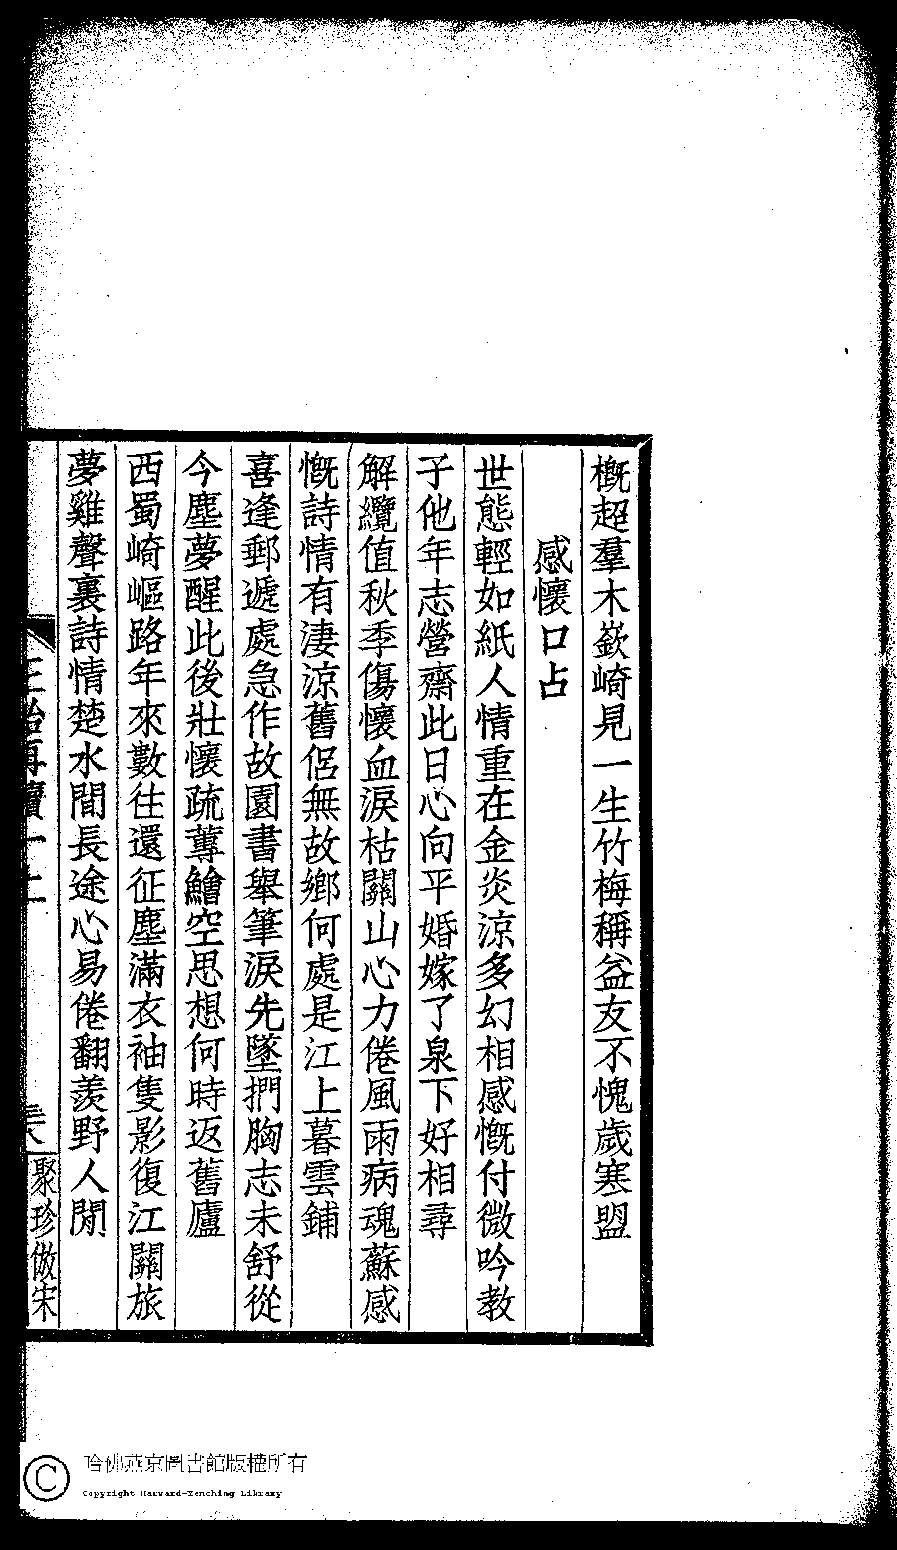 槪超羣木嶔崎見一生竹梅稱益友不愧歲寒盟
感懷口占
世態輕如紙人情重在金炎涼多幻相感慨付微吟教
子他年志營齋此日心向平婚嫁了泉下好相尋
解纜值秋季傷懷血淚枯關山心力倦風雨病魂蘇感
慨詩情有淒涼舊侶無故鄉何處是江上暮雲鋪
喜逢郵遞處急作故園書舉筆淚先墜捫胸志未舒從
今塵夢醒此後壯懷疏蓴鱠空思想何時返舊廬
西蜀崎嶇路年來數往還征塵滿衣袖隻影復江關旅
夢雞聲裏詩情楚水間長途心易倦翻羨野人閒
聚珍倣宋
哈佛燕京圖書館版權所有
Copyright Harvard-Yenching Library